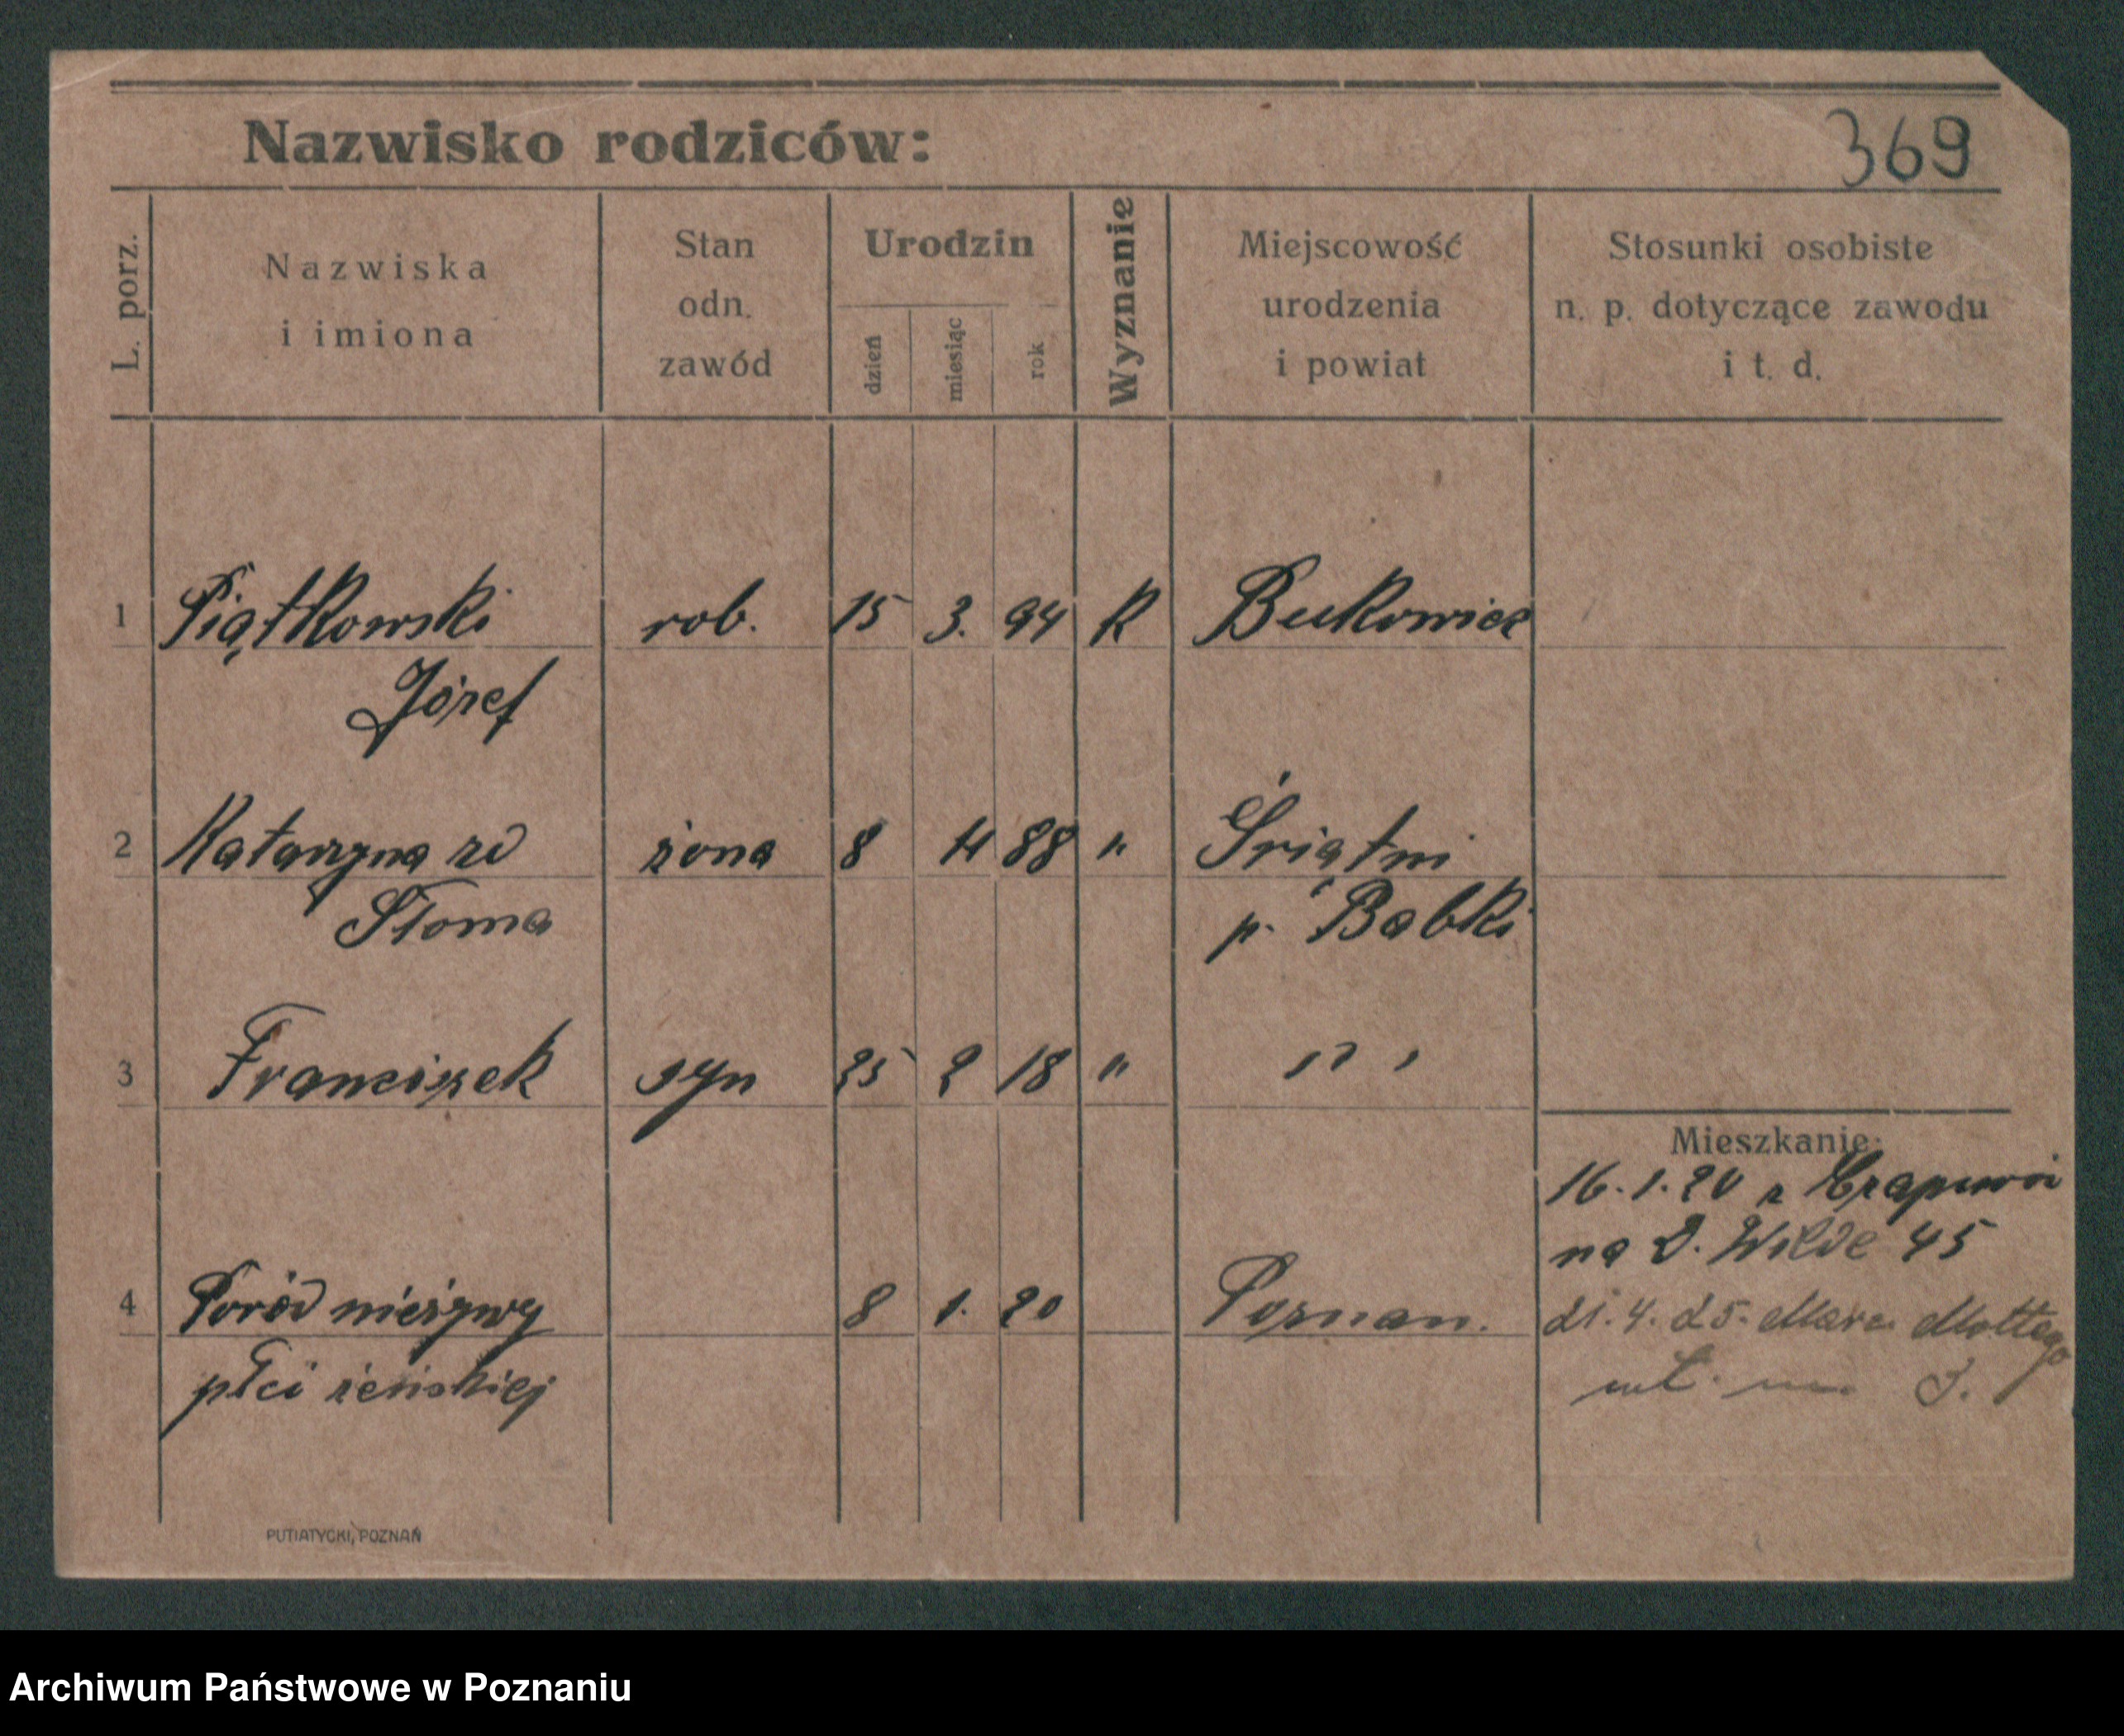 Nazwisko rodziców:
369
L. porz.
Nazwiska
i imiona
Stan
odn.
zawód
Urodzin
dzień
miesiąc
rok
Wyznanie
Miejscowość
urodzenia
i powiat
Stosunki osobiste
n. p. dotyczące zawodu
i t. d.
1 Piątkowski rob. 15 3. 94 K Bukowiec
Józef
2 Katarzyna zd żona 8 88 " Świątni
Słoma p. Babki
3 Franciszek syn 25 2 18 " " "
Mieszkanie:
16.1.20 z
na D. Wilde 45
4 Poród nieżywy 8 1. 20 Poznan.
płci żeńskiej
21.4.25. Marc. Mottego
3.
PUTIATYCKI, POZNAŃ
Archiwum Państwowe w Poznaniu